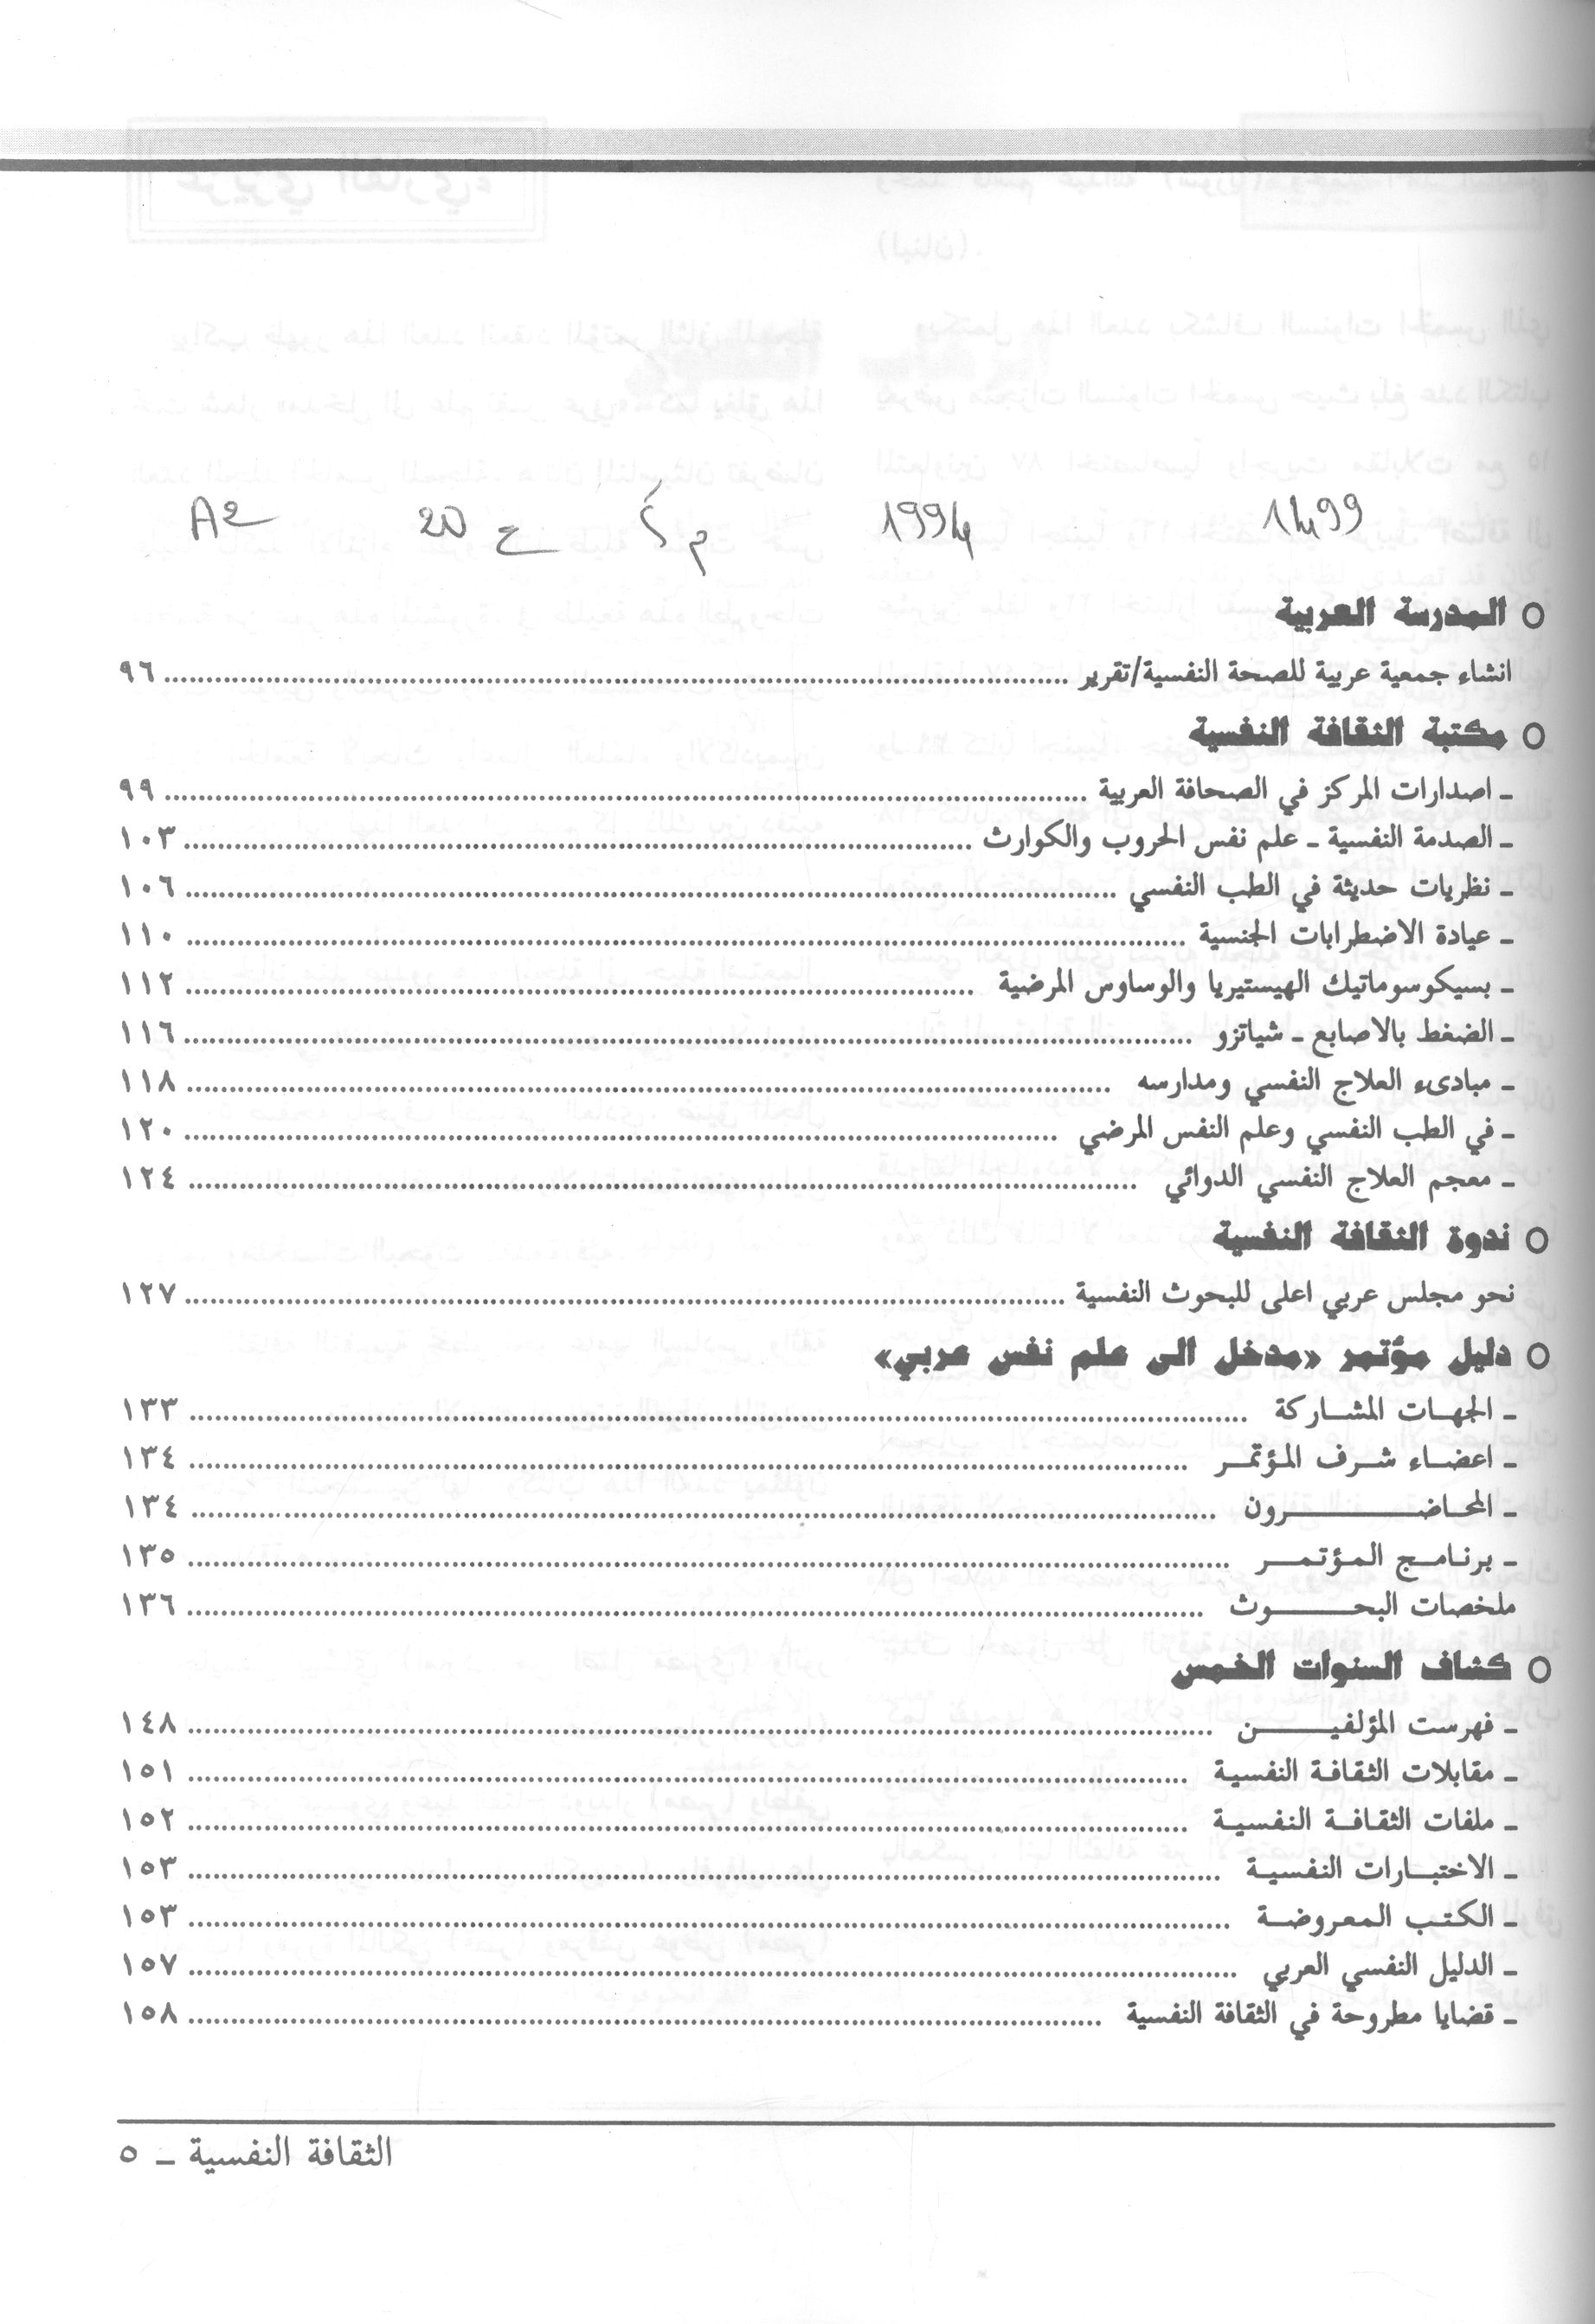 1499 1994 م 5 ع 20 A2
○ المدرسة العربية
انشاء جمعية عربية للصحة النفسية/تقرير ..... ٩٦
○ مكتبة الثقافة النفسية
ـ اصدارات المركز في الصحافة العربية ..... ٩٩
ـ الصدمة النفسية ـ علم نفس الحروب والكوارث ..... ١٠٣
ـ نظريات حديثة في الطب النفسي ..... ١٠٦
ـ عيادة الاضطرابات الجنسية ..... ١١٠
ـ بسيكوسوماتيك الهيستيريا والوساوس المرضية ..... ١١٢
ـ الضغط بالاصابع ـ شياتزو ..... ١١٦
ـ مبادىء العلاج النفسي ومدارسه ..... ١١٨
ـ في الطب النفسي وعلم النفس المرضي ..... ١٢٠
ـ معجم العلاج النفسي الدوائي ..... ١٢٤
○ ندوة الثقافة النفسية
نحو مجلس عربي اعلى للبحوث النفسية ..... ١٢٧
○ دليل مؤتمر «مدخل الى علم نفس عربي»
ـ الجهات المشاركة ..... ١٣٣
ـ اعضاء شرف المؤتمر ..... ١٣٤
ـ المحاضرون ..... ١٣٤
ـ برنامج المؤتمر ..... ١٣٥
ملخصات البحوث ..... ١٣٦
○ كشاف السنوات الخمس
ـ فهرست المؤلفين ..... ١٤٨
ـ مقابلات الثقافة النفسية ..... ١٥١
ـ ملفات الثقافة النفسية ..... ١٥٢
ـ الاختبارات النفسية ..... ١٥٣
ـ الكتب المعروضة ..... ١٥٣
ـ الدليل النفسي العربي ..... ١٥٧
ـ قضايا مطروحة في الثقافة النفسية ..... ١٥٨
الثقافة النفسية ـ ٥